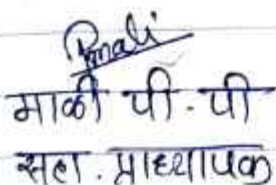 Pmali
माळी पी. पी
सहा. प्राध्यापक